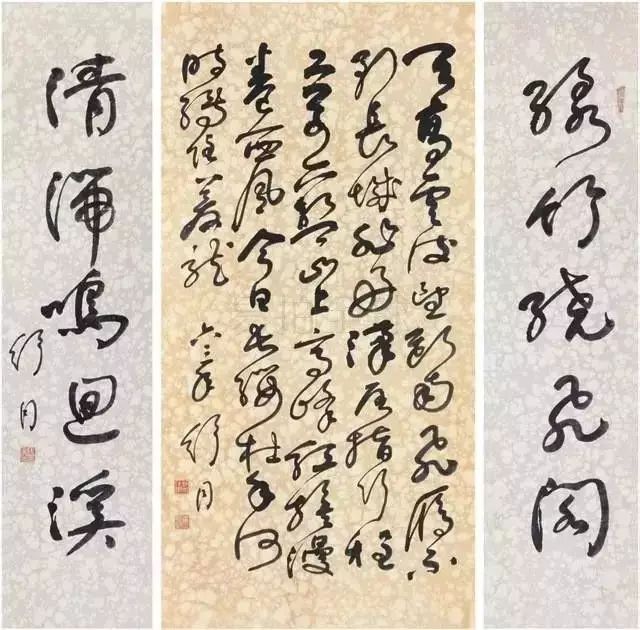 緑竹繞飛閣
天高雲淡望斷南飛雁不
到長城非好漢屈指行程
二万六盤山上高峰紅旗漫
卷西風今日長纓在手何
時縛住蒼龍 六三年 舒同
清鳴回溪
舒同